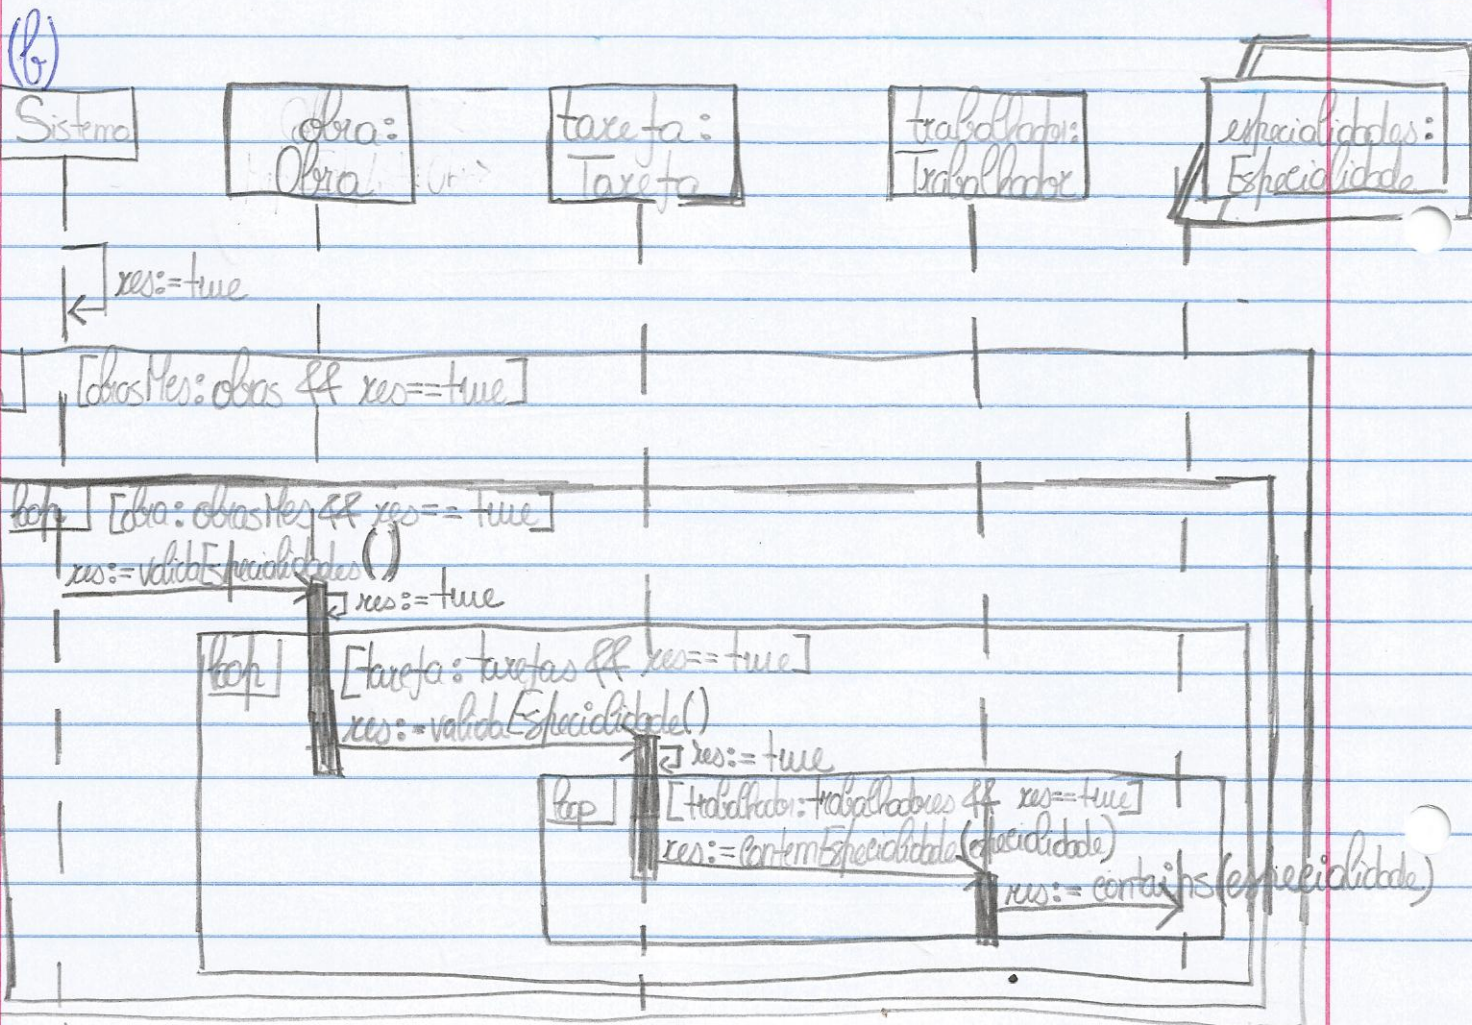 (b)
Sistema
obra:
Obra
tarefa:
Tarefa
trabalhador:
Trabalhador
especialidades:
Especialidade
res:=true
[obrasMes: obras && res==true]
loop [obra: obrasMes && res==true]
res:=validaEspecialidades()
res:=true
loop [tarefa: tarefas && res==true]
res:=validaEspecialidade()
res:=true
loop [trabalhador: trabalhadores && res==true]
res:=contemEspecialidade(especialidade)
res:= contains(especialidade)